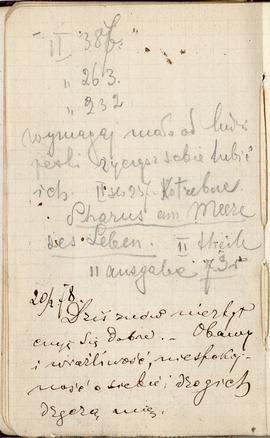 II 387.
" 263.
" 232
wymagaj mało od ludzi
jeśli życzysz sobie lubić
ich. II str. 257. Kotzebue.
Pharus am Meere
des Leben. II theil
II ausgabe 73r
20/1 78.
Dziś znów niezbyt
czuję się dobrze. – Obawy
i wrażliwość, niespokoj-
ność o siebie i drogich
dręczą mię.